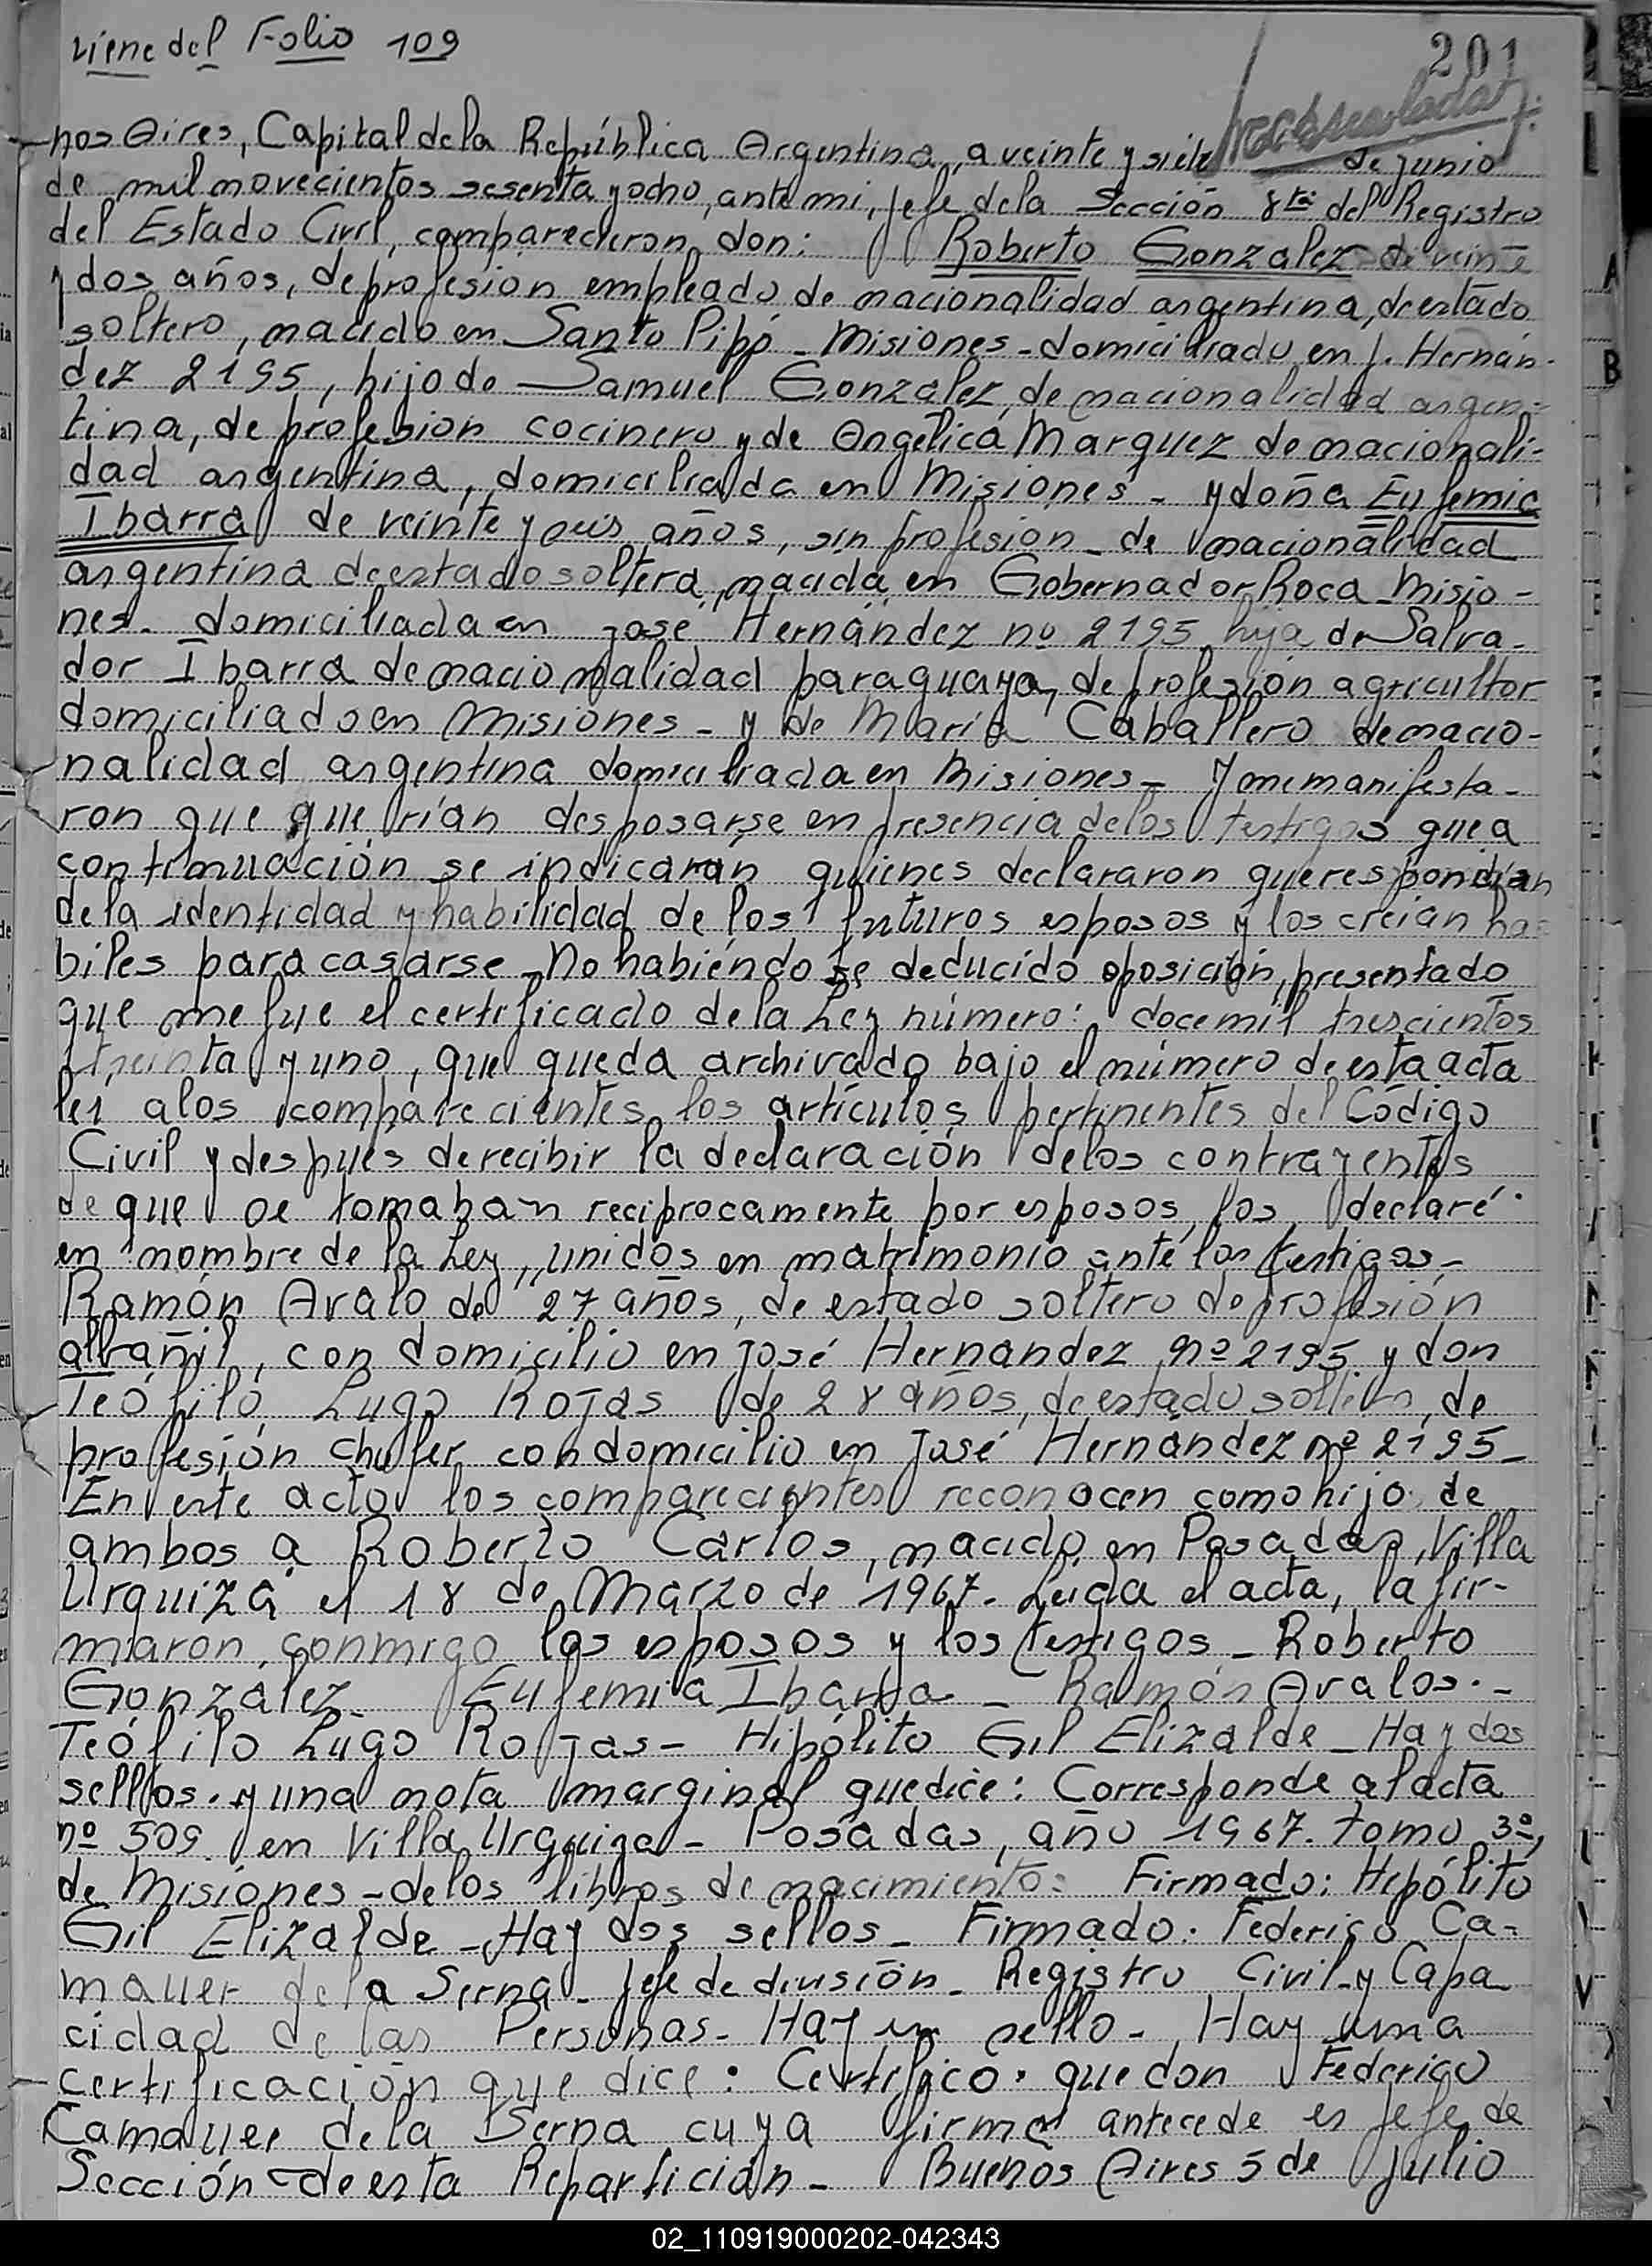 viene del Folio 109
201
nos Aires, Capital de la República Argentina, a veinte y siete de junio
de mil novecientos sesenta y ocho, ante mi, Jefe de la Sección 8ta del Registro
del Estado Civil, comparecieron don: Roberto Gonzalez de veinte
y dos años, de profesión empleado de nacionalidad argentina, de estado
soltero, nacido en Santo Pipó - Misiones - domiciliado en J. Hernán-
dez 2195, hijo de Samuel Gonzalez, de nacionalidad argen-
tina, de profesion cocinero y de Angélica Marquez de nacionali-
dad argentina, domiciliada en Misiones - y doña Eufemia
Ibarra de veinte y seis años, sin profesión - de nacionalidad
argentina de estado soltera, nacida en Gobernador Roca - Misio-
nes - domiciliada en José Hernández nº 2195 hija de Salva-
dor Ibarra de nacionalidad paraguaya, de profesión agricultor
domiciliado en Misiones - y de María Caballero de nacio-
nalidad argentina domiciliada en Misiones - Y me manifesta-
ron que querían desposarse en presencia de los testigos que a
continuación se indicarán quienes declararon que respondían
de la identidad y habilidad de los futuros esposos y los creían há-
biles para casarse - No habiéndose deducido oposición, presentado
que me fue el certificado de la Ley número: doce mil trescientos
treinta y uno, que queda archivado bajo el número de esta acta
leí a los comparecientes los artículos pertinentes del Código
Civil y después de recibir la declaración de los contrayentes
de que se tomaban recíprocamente por esposos, los declaré
en nombre de la Ley, unidos en matrimonio ante los testigos -
Ramón Avalo de 27 años, de estado soltero de profesión
albañil, con domicilio en José Hernandez nº 2195 y don
Teófilo Lugo Rojas de 28 años, de estado soltero, de
profesión chofer con domicilio en José Hernández nº 2195 -
En este acto los comparecientes reconocen como hijo de
ambos a Roberto Carlos, nacido en Posadas, Villa
Urquiza el 18 de Marzo de 1967 - Leida el acta, la fir-
maron conmigo los esposos y los testigos - Roberto
González - Eufemia Ibarra - Ramón Avalos. -
Teófilo Lugo Rojas - Hipólito Gil Elizalde - Hay dos
sellos. y una nota marginal que dice: Corresponde al acta
nº 509 en Villa Urquiza - Posadas, año 1967. tomo 3º,
de Misiones - de los libros de nacimiento: Firmado: Hipólito
Gil Elizalde - Hay dos sellos - Firmado. Federico Ca-
mauer de la Serna - Jefe de división - Registro Civil y Capa
cidad de las Personas - Hay un sello - Hay una
certificación que dice: Certifico: que don Federico
Camauer de la Serna cuya firma antecede es Jefe de
Sección de esta Repartición - Buenos Aires 5 de Julio
02_110919000202-042343